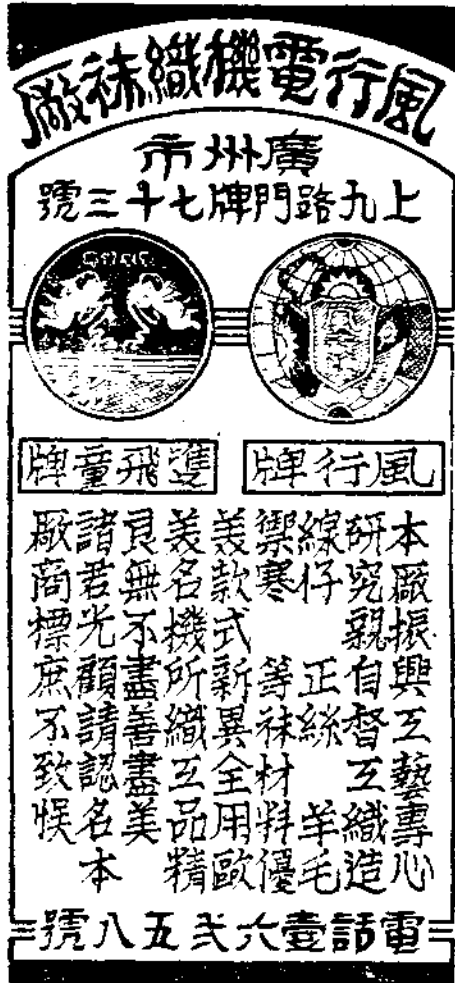 風行電機織袜廠
廣州市
上九路門牌七十三號
風行牌
雙飛童牌
本厰振興工藝專心
研究親自督工織造
線仔 正絲 羊毛
禦寒 等袜材料優
美款式新異全用歐
美名機所織工品精
良無不盡善盡美
諸君光顧請認名本
厰商標庶不致悮
電話壹六弍五八號